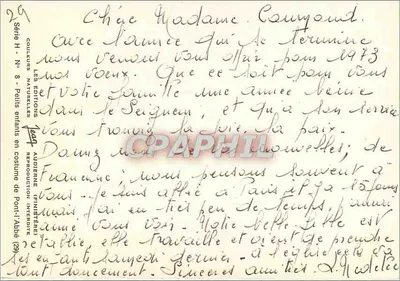 29
Chère Madame
avec l'année qui se termine
nous venons vous offrir pour 1973
nos voeux. Que ce soit pour vous
et votre famille une année bénie
dans le Seigneur, et qu'à son service
vous trouviez la joie, la paix.
Donnez nous des nouvelles; de
nous pensons souvent à
vous. Je suis allée à Paris il y a 15 jours
mais j'ai eu très peu de temps, j'aurais
aimé vous voir. Notre belle fille est
rétablie, elle travaille et vient de prendre
ses enfants samedi dernier. à l'église cela va
tout doucement. Sincères amitiés.
CPAPHIL
Série H - N° 8 - Petits enfants en costume de Pont-l'Abbé (29)
COULEURS NATURELLES
LES EDITIONS
Jean
AUDIERNE (FINISTERE)
REPRODUCTION INTERDITE